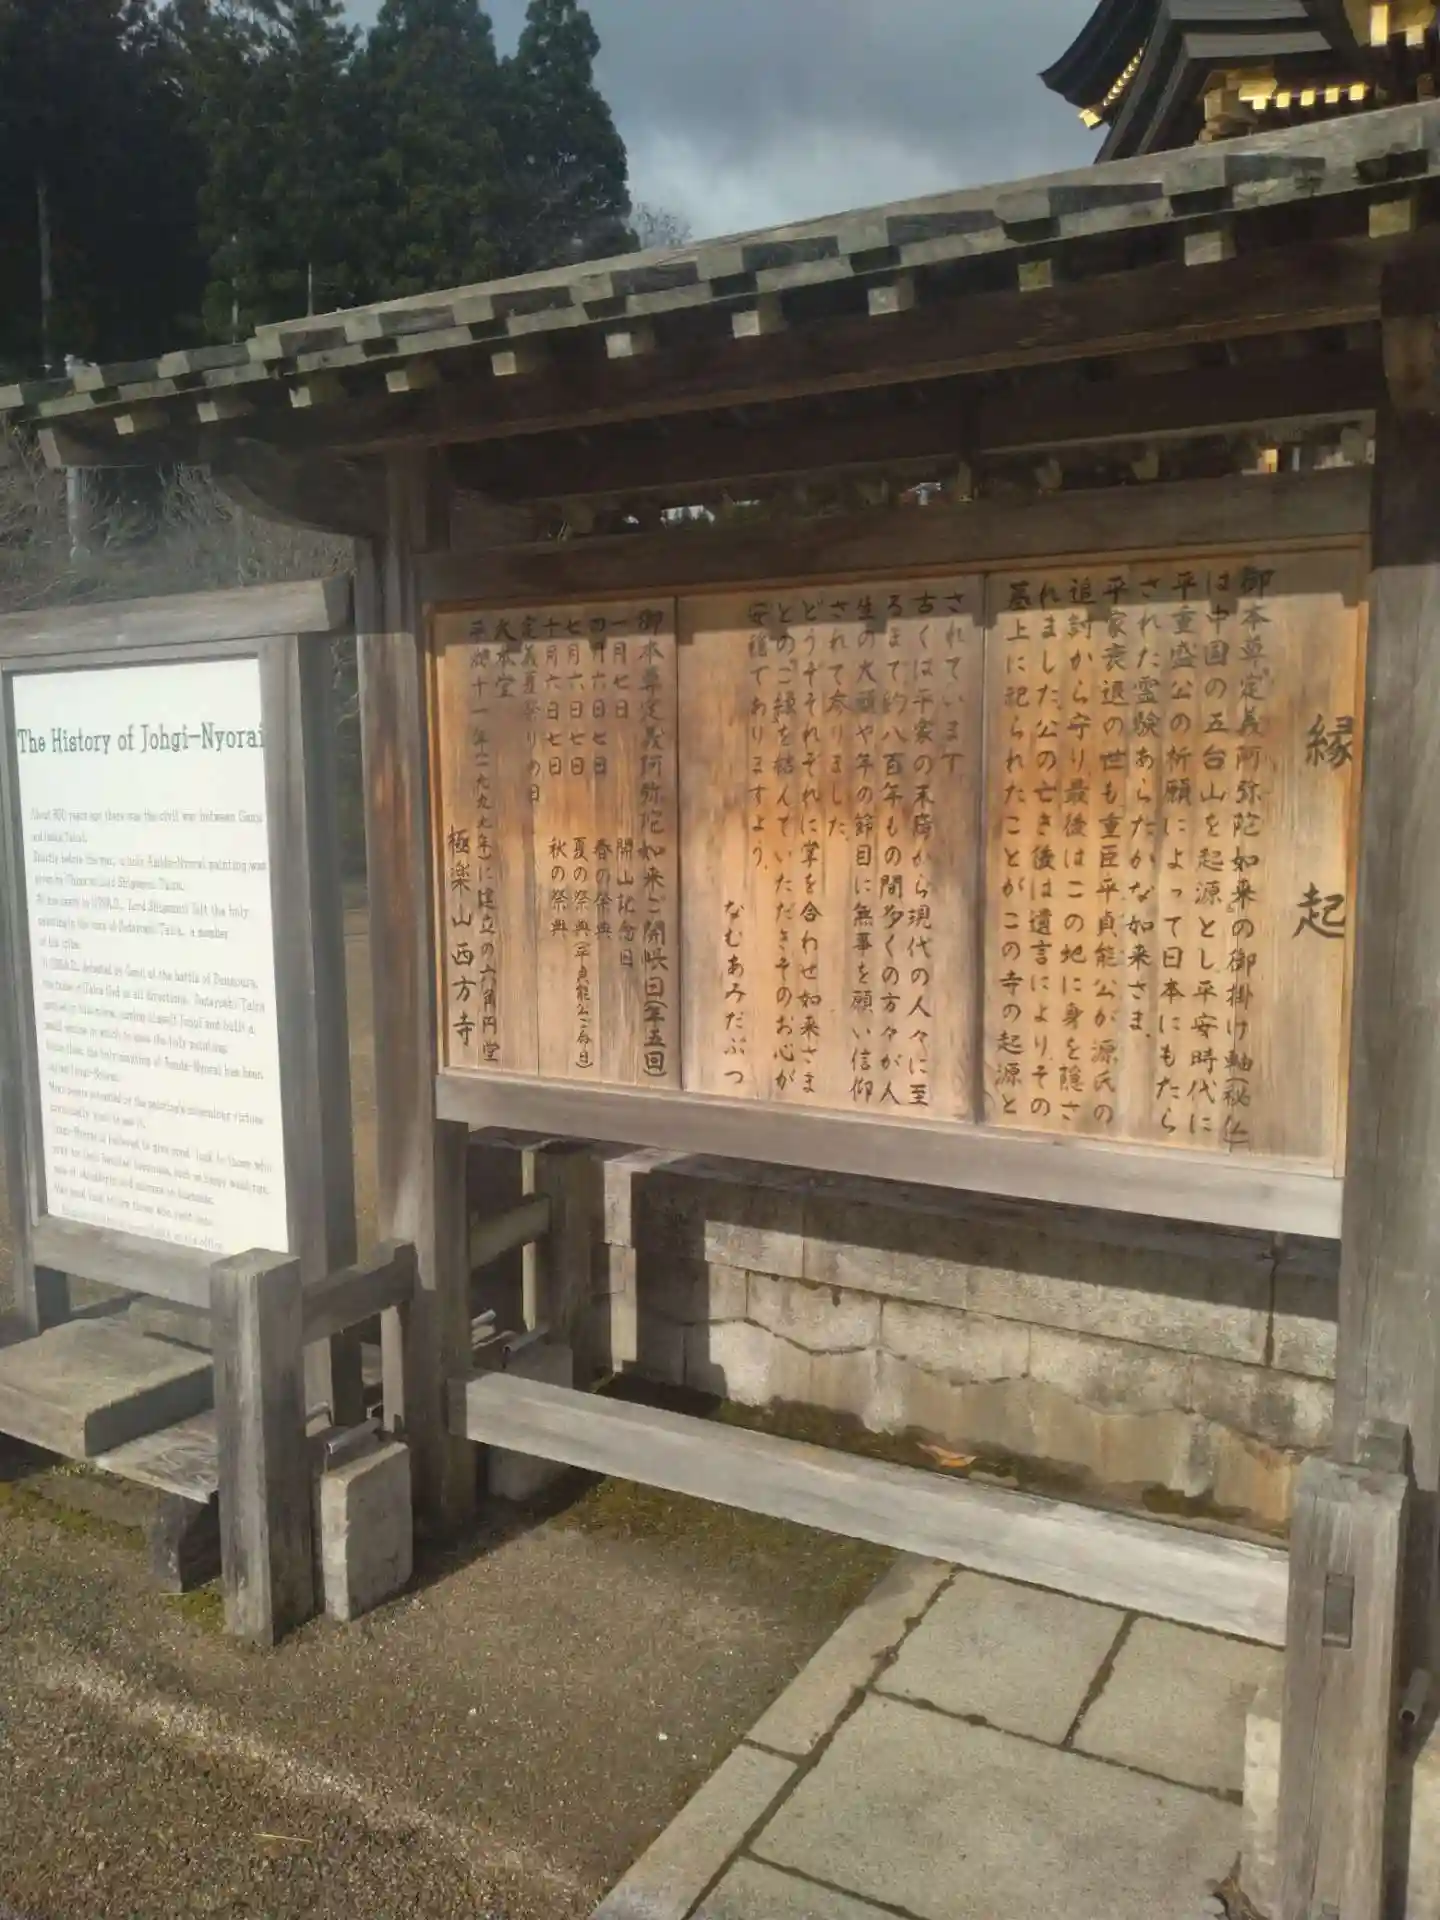 The History of Johgi-Nyorai
About 800 years ago there was the civil war between Genji
and Heike Taira).
Shortly before the war, a holy Amida-Nyorai painting was
given by China to Lord Shigemori Taira.
Lord Shigemori left the holy
painting in the care of Sadayoshi Taira, a member
of his tribe.
defeated by Genji at the battle of Dannoura,
the tribe of Taira fled in all directions. Sadayoshi Taira
settled in this
small
Since then, the holy painting of Amida-Nyorai has been
called Johgi-Nyorai.
縁起
御本尊定義阿弥陀如来の御掛け軸(秘仏)
は中国の五台山を起源とし平安時代に
平重盛公の祈願によって日本にもたら
された霊験あらたかな如来さま、
平家衰退の世も重臣平貞能公が源氏の
追討から守り最後はこの地に身を隠さ
れました。公の亡き後は遺言によりその
墓上に祀られたことがこの寺の起源と
されています。
古くは平家の末裔から現代の人々に至
るまで約八百年もの間多くの方々が人
生の大願や年の節目に無事を願い信仰
されて参りました。
どうぞそれぞれに掌を合わせ如来さま
とのご縁を結んでいただきそのお心が
安穏でありますよう。
なむあみだぶつ
御本尊定義阿弥陀如来ご開帳日(年五回)
一月七日 開山記念日
四月六日七日 春の祭典
七月六日七日 夏の祭典(平貞能公ご命日)
十月六日七日 秋の祭典
定義夏祭りの日
大本堂
平成十一年(一九九九年)に建立の六角円堂
極楽山西方寺